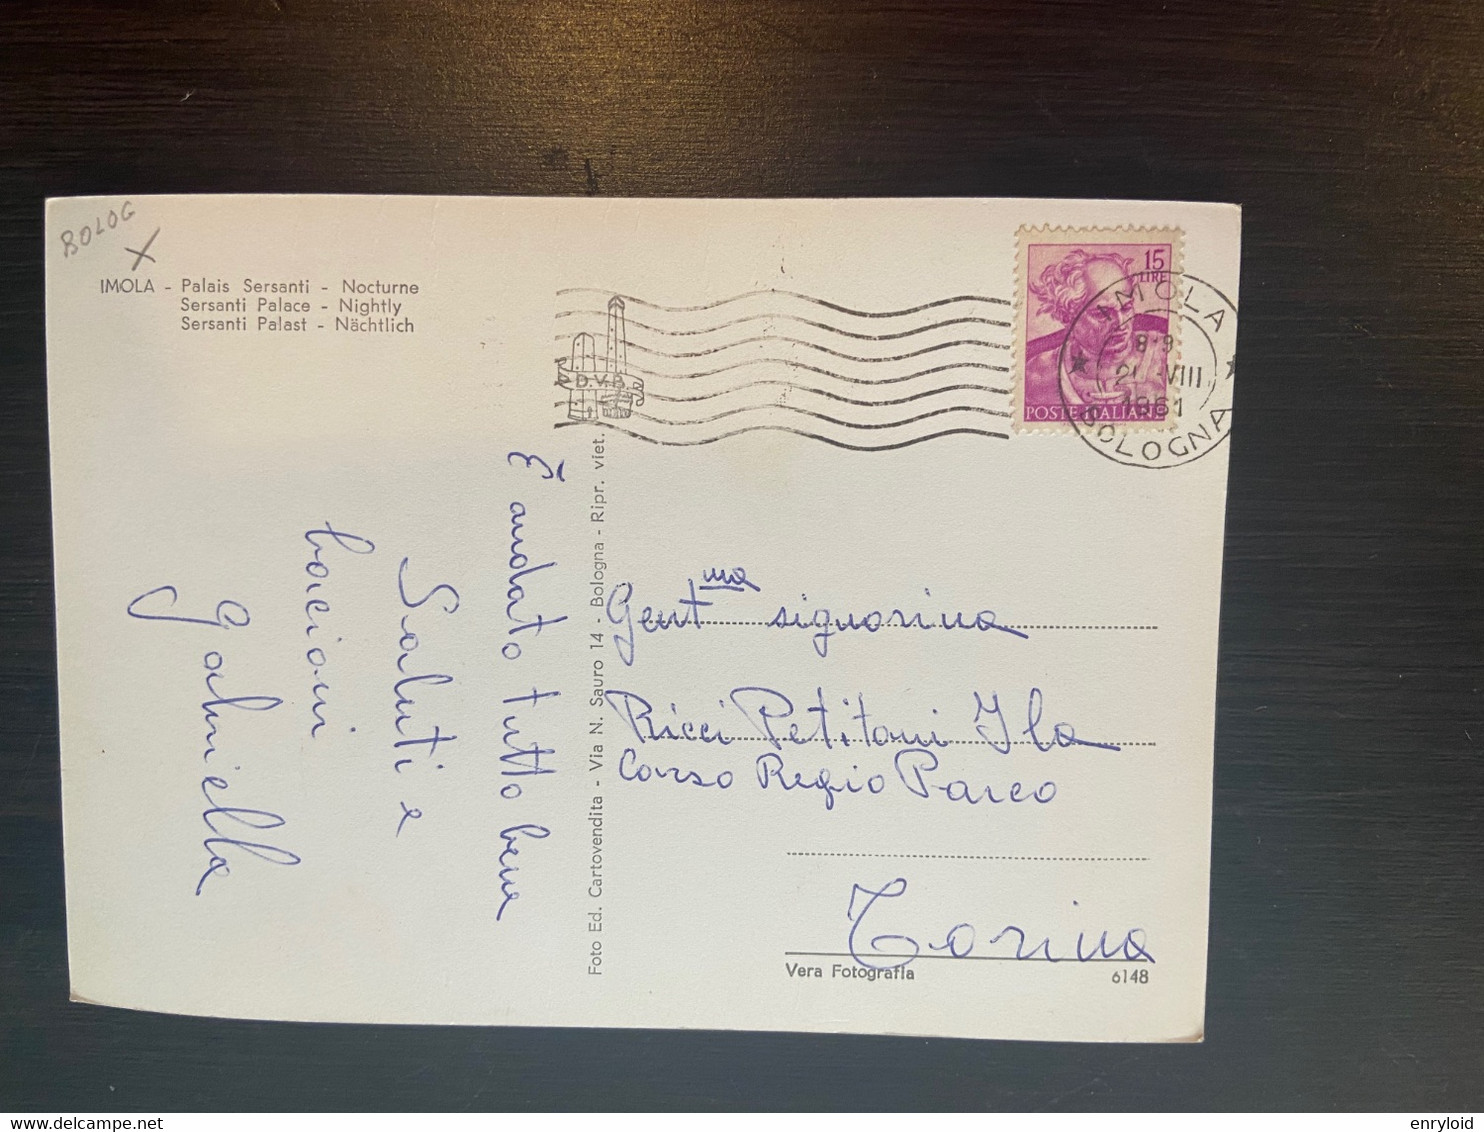 BOLOG
IMOLA - Palais Sersanti - Nocturne
Sersanti Palace - Nightly
Sersanti Palast - Nächtlich
D.V.B.
15
LIRE
POSTE ITALIANE
IMOLA
8-9
VIII
1961
BOLOGNA
È andato tutto bene
Saluti e
bacioni
Gabriella
Foto Ed. Cartovendita - Via N. Sauro 14 - Bologna - Ripr. viet.
Gent.ma signorina
Ricci Petitoni Ila
Corso Regio Parco
Torino
Vera Fotografia
6148
enryloid